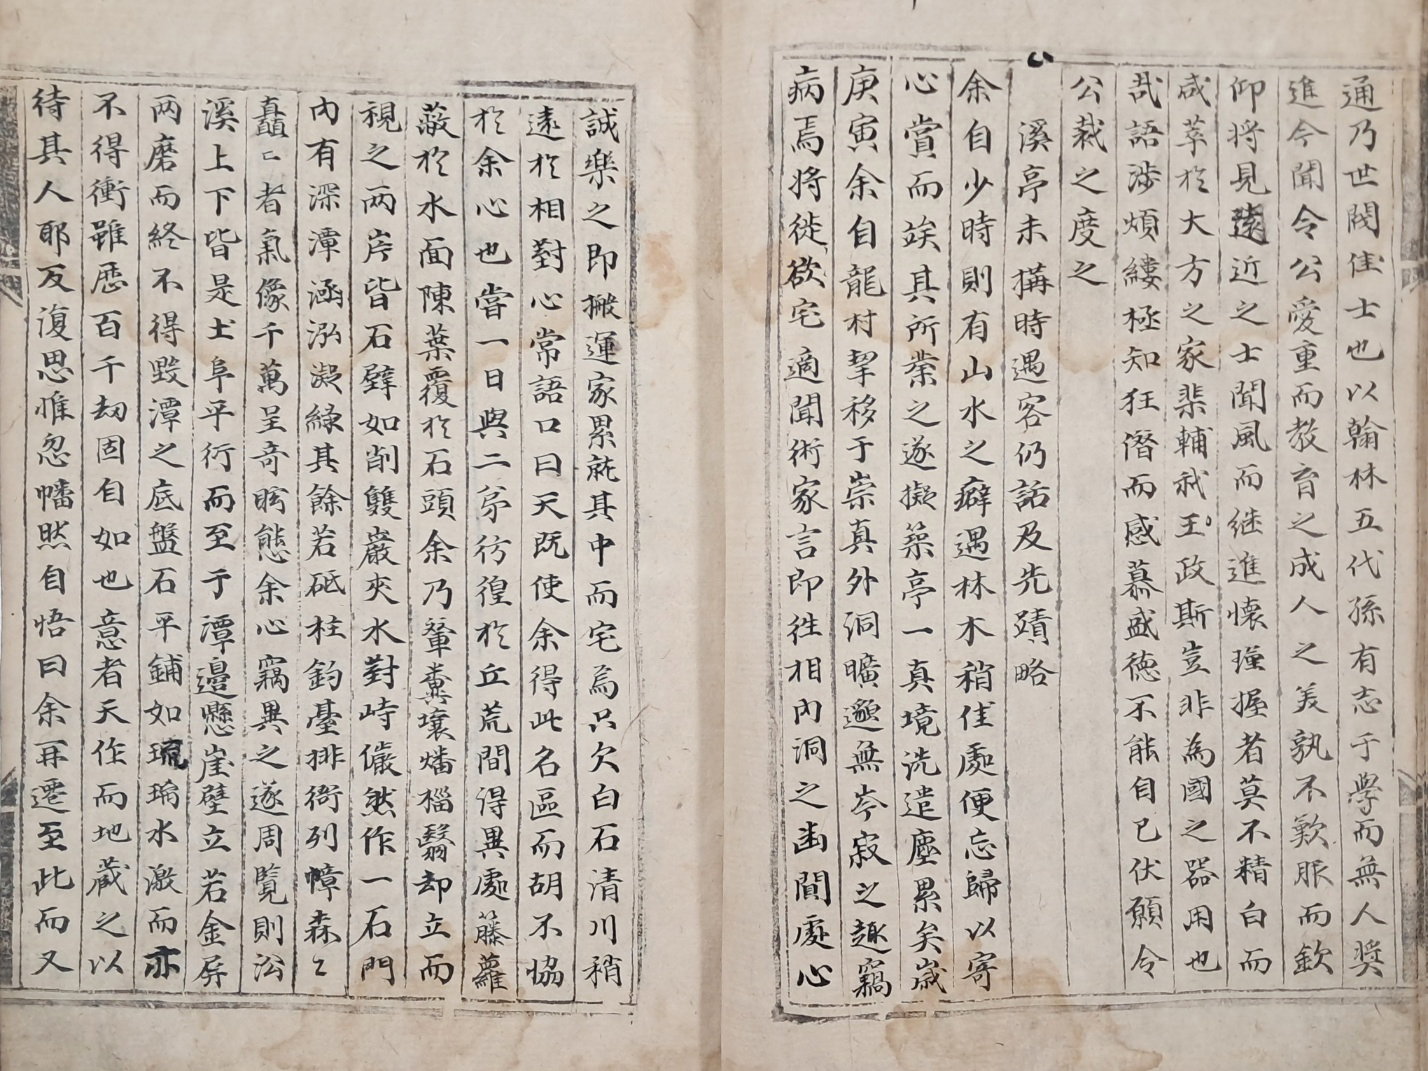 通乃世閥佳士也以翰林五代孫有志于學而無人奬
進今聞令公愛重而教育之成人之美孰不歎服而欽
仰將見遠近之士聞風而继進懷瑾握者莫不精白而
咸萃於大方之家棐輔我王政斯豈非為國之器用也
哉語涉煩縷極知狂僭而感慕盛德不能自已伏願令
公裁之度之
溪亭未搆時遇客仍話及先蹟略
余自少時則有山水之癖遇林木稍佳處便忘歸以寄
心賞而竢其所業之遂擬築亭一真境洗遣塵累矣歲
庚寅余自龍村挈移于崇真外洞曠邈無岑寂之趣竊
病焉將徙欲宅適聞術家言即徃相內洞之幽閒處心
誠樂之即搬運家累就其中而宅焉只欠白石清川稍
遠於相對心常語口曰天既使余得此名區而胡不恊
於余心也嘗一日與二𠂖彷徨於丘荒間得異處藤蘿
蔽於水面陳葉覆於石頭余乃輦糞壤燔椔翳却立而
視之兩岸皆石壁如削雙巖夾水對峙儼然作一石門
內有深潭涵泓凝綠其餘若砥柱釣臺排衙列幛森々
矗々者氣像千萬呈奇眩態余心竊異之遂周覽則㳂
溪上下皆是土阜平行而至于潭邉懸崖壁立若金屏
兩磨而終不得毀潭之底盤石平鋪如琉璃水激而亦
不得衝雖歷百千刼固自如也意者天作而地蔵之以
待其人耶反復思惟忽幡然自悟曰余再遷至此而又